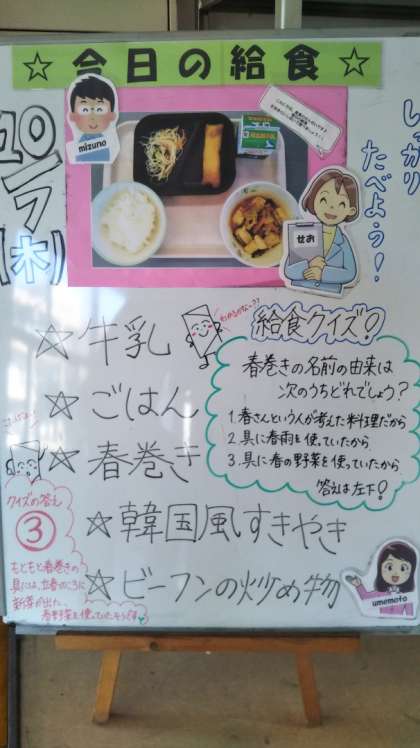 ☆今日の給食☆
mizuno
10/7(木)
しっかり
たべよう!
せお
☆牛乳
☆ごはん
☆春巻き
☆韓国風すきやき
☆ビーフンの炒め物
給食クイズ!
春巻きの名前の由来は
次のうちどれでしょう?
1.春さんという人が考えた料理だから
2.具に春雨を使っていたから
3.具に春の野菜を使っていたから
答えは左下!
クイズの答え
③
もともと春巻きの
具には、立春のころに
新芽が出た、
春野菜を使っていたそうです
umemoto